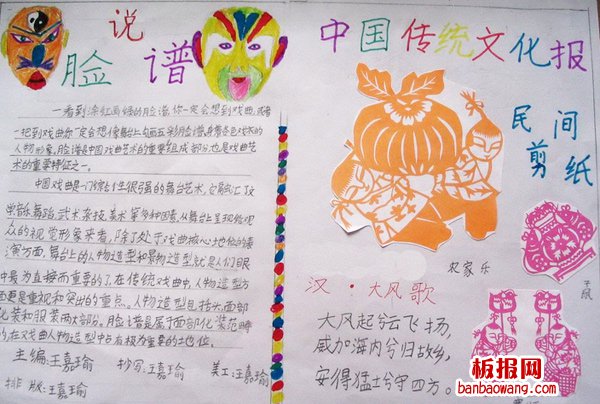 说
脸谱
一看到涂红画绿的脸谱,你一定会想到戏曲,或者
一提到戏曲你一定会想像舞台上勾画五彩脸谱,身着各色戏衣的
人物形象。脸谱是中国戏曲艺术的重要组成部分也是戏曲艺
术的重要特征之一。
中国戏曲是一门综合性很强的舞台艺术,它融汇了文
学音乐舞蹈,武术杂技,美术等多种因素,从舞台呈现给观
众的视觉形象来看,除了处于戏曲核心地位的表
演方面,舞台上的人物造型和景物造型就是人们眼
中最为直接而重要的了.在传统戏曲中,人物造型方
面更是重视和突出的重点。人物造型包括头面部
化装和服装两大部分。脸谱是属于面部化装范畴
的,在戏曲人物造型中占有极为重要的地位。
主编:王嘉瑜
抄写:王嘉瑜
美工:王嘉瑜
排版:王嘉瑜
中国传统文化报
民间
剪纸
农家乐
汉·大风歌
大风起兮云飞扬,
威加海内兮归故乡,
安得猛士兮守四方。
板报网
banbaowang.com